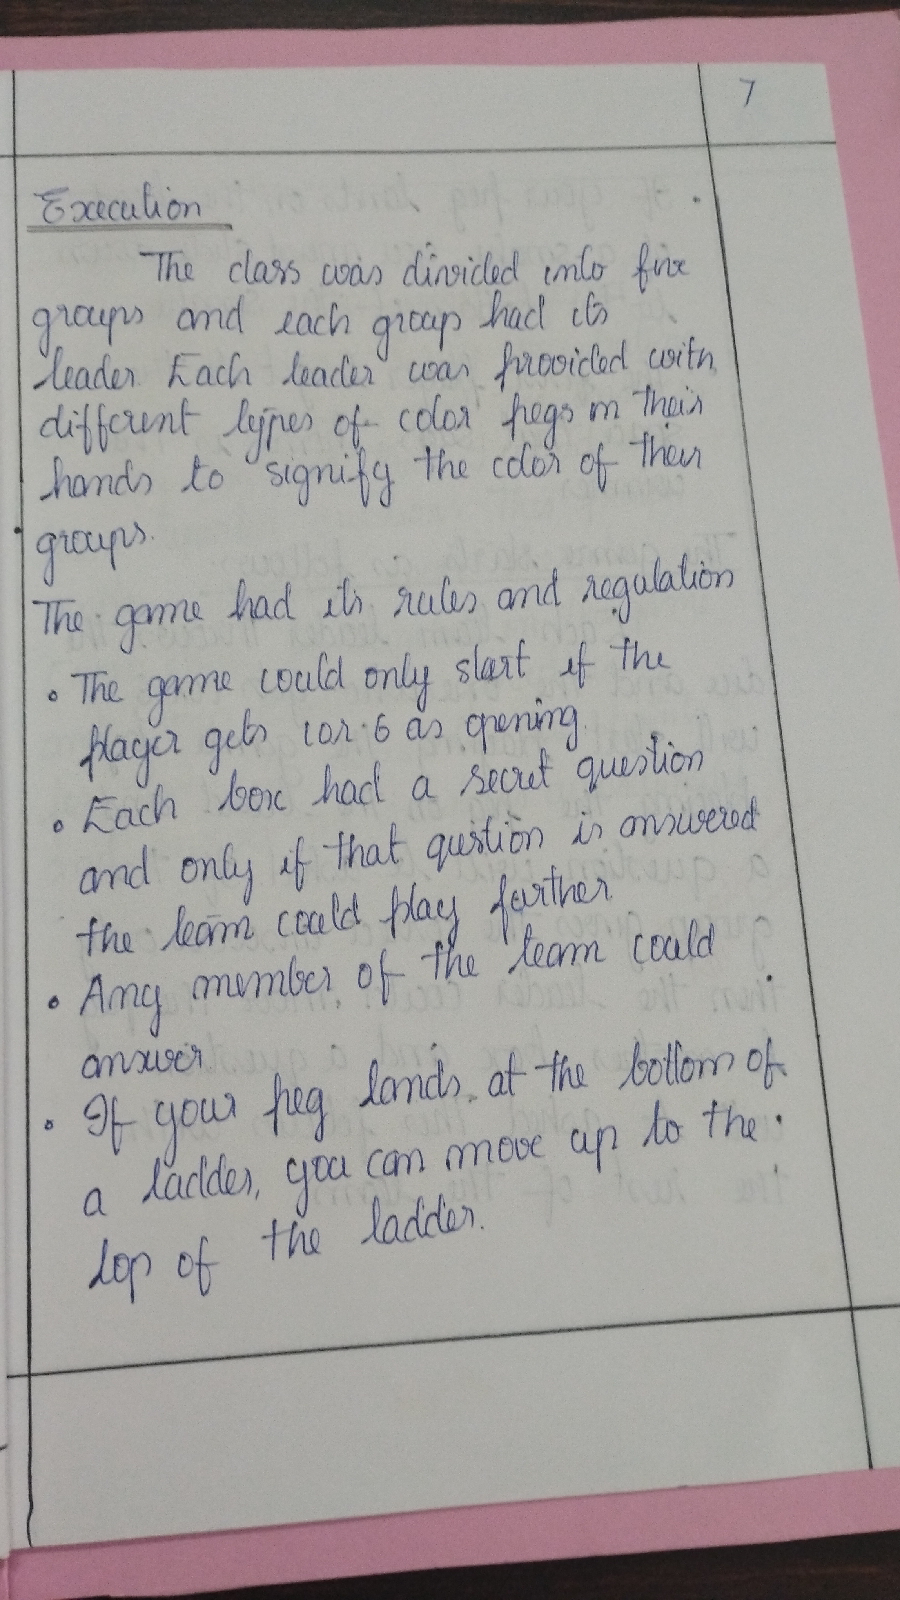 7
Execution
The class was divided into five
groups and each group had its
leader. Each leader was provided with
different types of color pegs in their
hands to signify the color of their
groups.
The game had its rules and regulation
• The game could only start if the
player gets 1 or 6 as opening.
• Each box had a secret question
and only if that qustion is answered
the team could play further.
• Any member of the team could
answer
• If your peg lands at the bottom of
a ladder, you can move up to the
top of the ladder.